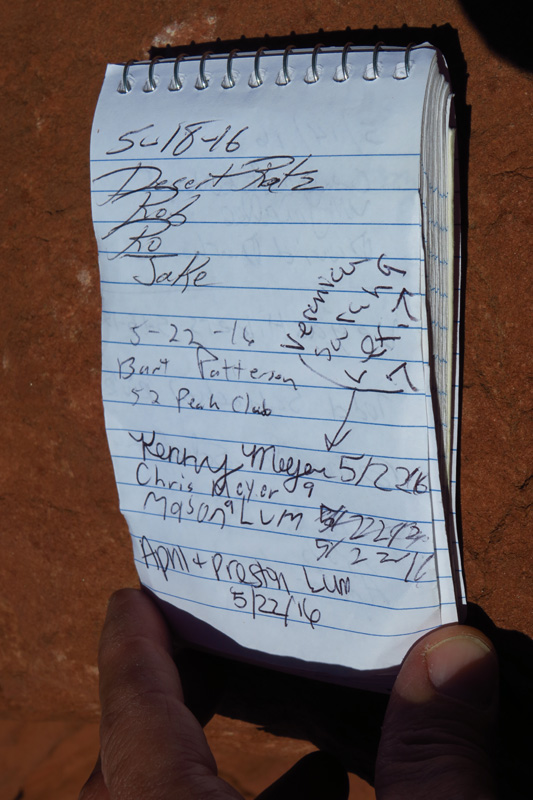 5-18-16
Desert Ratz
Rob
Ro
Jake
5-22-16
Burt Patterson
52 Peak Club
Kenny Meyer 5/22/16
Chris Meyer 9
Mason Lum
5/22/16
April + Preston Lum
5/22/16